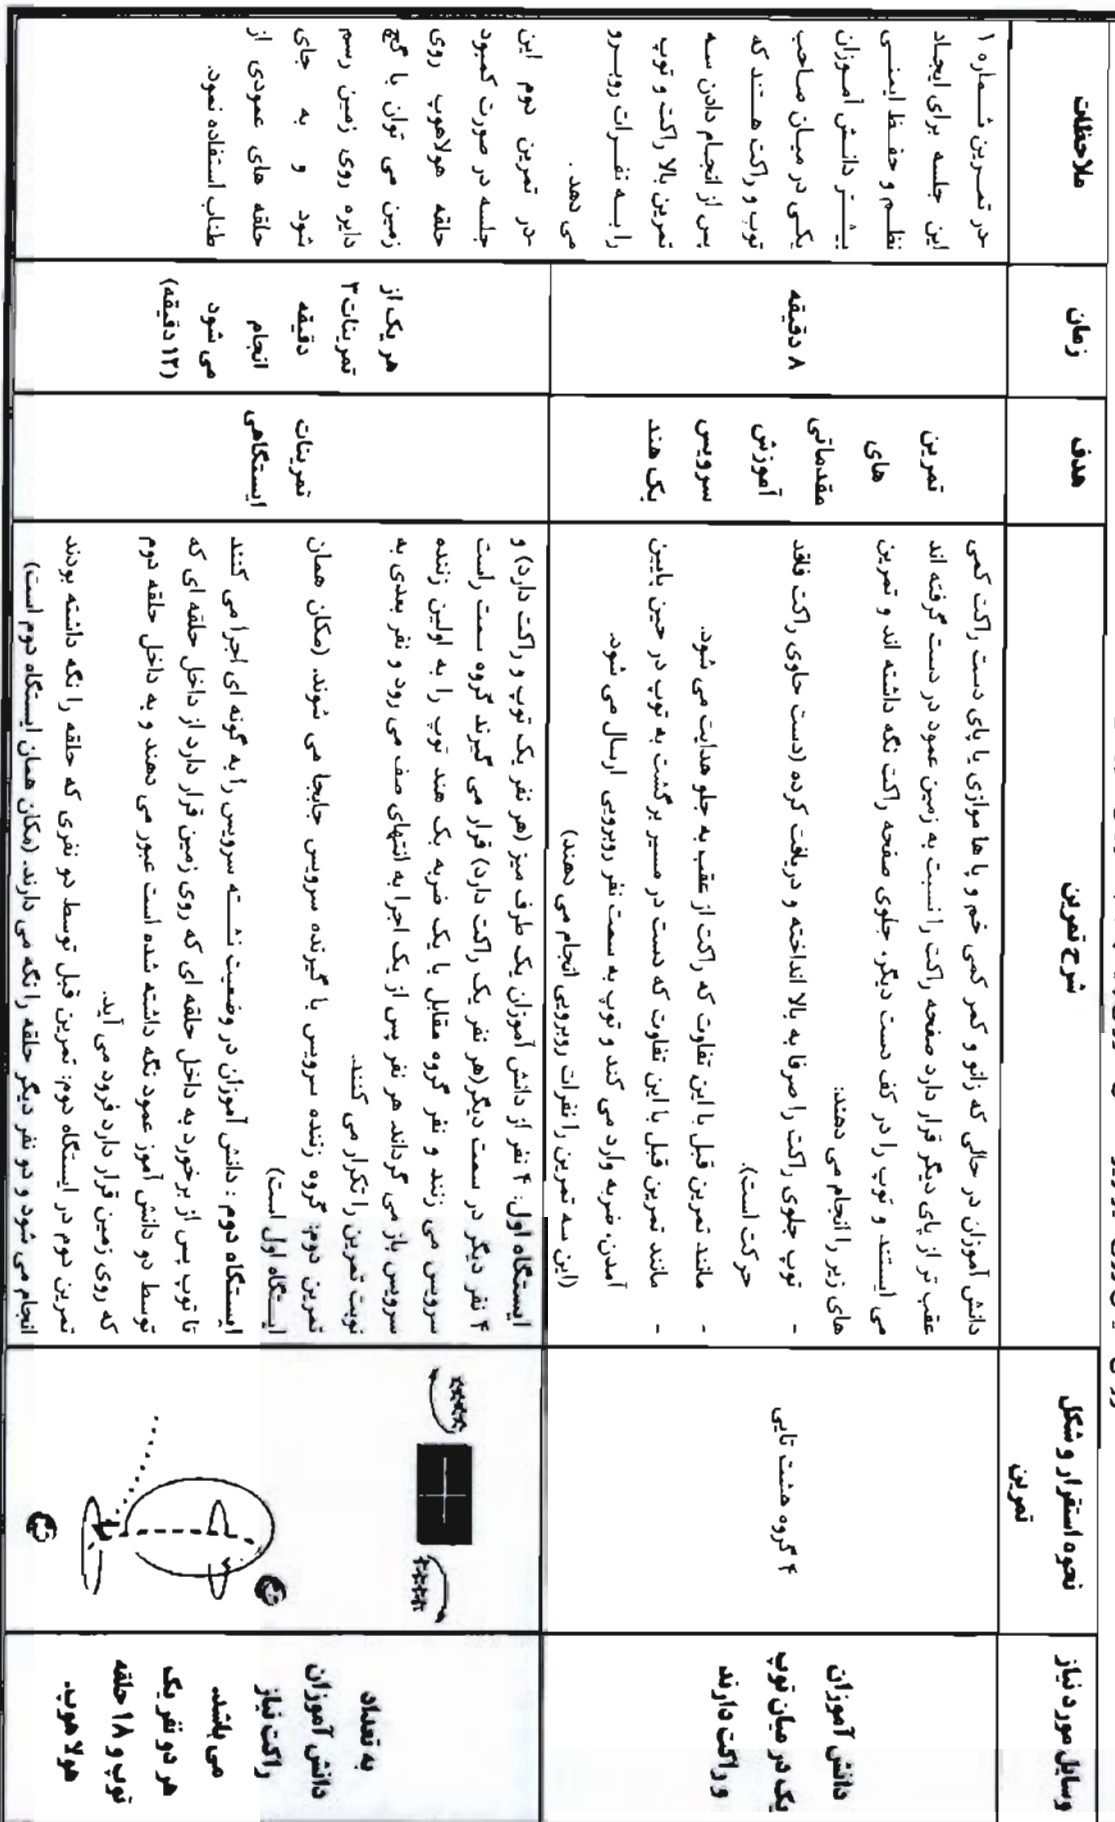 وسایل مورد نیاز
نحوه استقرار و شکل
تمرین
شرح تمرین
هدف
زمان
ملاحظات
دانش آموزان
یک در میان توپ
و راکت دارند
۴ گروه هشت تایی
دانش آموزان در حالی که زانو و کمر کمی خم و پا ها موازی یا پای دست راکت کمی
عقب تر از پای دیگر قرار دارد صفحه راکت را نسبت به زمین عمود در دست گرفته اند
می ایستند و توپ را در کف دست دیگر، جلوی صفحه راکت نگه داشته اند و تمرین
های زیر را انجام می دهند:
- توپ جلوی راکت را صرفا به بالا انداخته و دریافت کرده (دست حاوی راکت فاقد
حرکت است).
- مانند تمرین قبل با این تفاوت که راکت از عقب به جلو هدایت می شود.
- مانند تمرین قبل با این تفاوت که دست در مسیر برگشت به توپ در حین پایین
آمدن، ضربه وارد می کند و توپ به سمت نفر روبرویی ارسال می شود.
(این سه تمرین را نفرات روبرویی انجام می دهند)
تمرین
های
مقدماتی
آموزش
سرویس
بک هند
۸ دقیقه
-در تمرین شماره ۱
این جلسه برای ایجاد
نظم و حفظ ایمنی
بیشتر دانش آموزان
یکی در میان صاحب
توپ و راکت هستند که
پس از انجام دادن سه
تمرین بالا راکت و توپ
را به نفرات روبرو
می دهد.
به تعداد
دانش آموزان
راکت نیاز
می باشد.
هر دو نفر یک
توپ و ۱۸ حلقه
هولا هوپ.
ایستگاه اول: ۴ نفر از دانش آموزان یک طرف میز (هر نفر یک توپ و راکت دارد) و
۴ نفر دیگر در سمت دیگر(هر نفر یک راکت دارد) قرار می گیرند گروه سمت راست
سرویس می زنند و نفر گروه مقابل با یک ضربه بک هند توپ را به اولین زننده
سرویس باز می گرداند هر نفر پس از یک اجرا به انتهای صف می رود و نفر بعدی به
نوبت تمرین را تکرار می کنند.
تمرین دوم: گروه زننده سرویس با گیرنده سرویس جابجا می شوند. (مکان همان
ایستگاه اول است)
ایستگاه دوم : دانش آموزان در وضعیت نشسته سرویس را به گونه ای اجرا می کنند
تا توپ پس از برخورد به داخل حلقه ای که روی زمین قرار دارد از داخل حلقه ای که
توسط دو دانش آموز عمود نگه داشته شده است عبور می دهند و به داخل حلقه دوم
که روی زمین قرار دارد فرود می آید.
تمرین دوم در ایستگاه دوم: تمرین قبل توسط دو نفری که حلقه را نگه داشته بودند
انجام می شود و دو نفر دیگر حلقه را نگه می دارند. (مکان همان ایستگاه دوم است)
تمرینات
ایستگاهی
هر یک از
تمرینات ۳
دقیقه
انجام
می شود
(۱۲ دقیقه)
-در تمرین دوم این
جلسه در صورت کمبود
حلقه هولاهوپ روی
زمین می توان با گچ
دایره روی زمین رسم
شود و به جای
حلقه های عمودی از
طناب استفاده نمود.